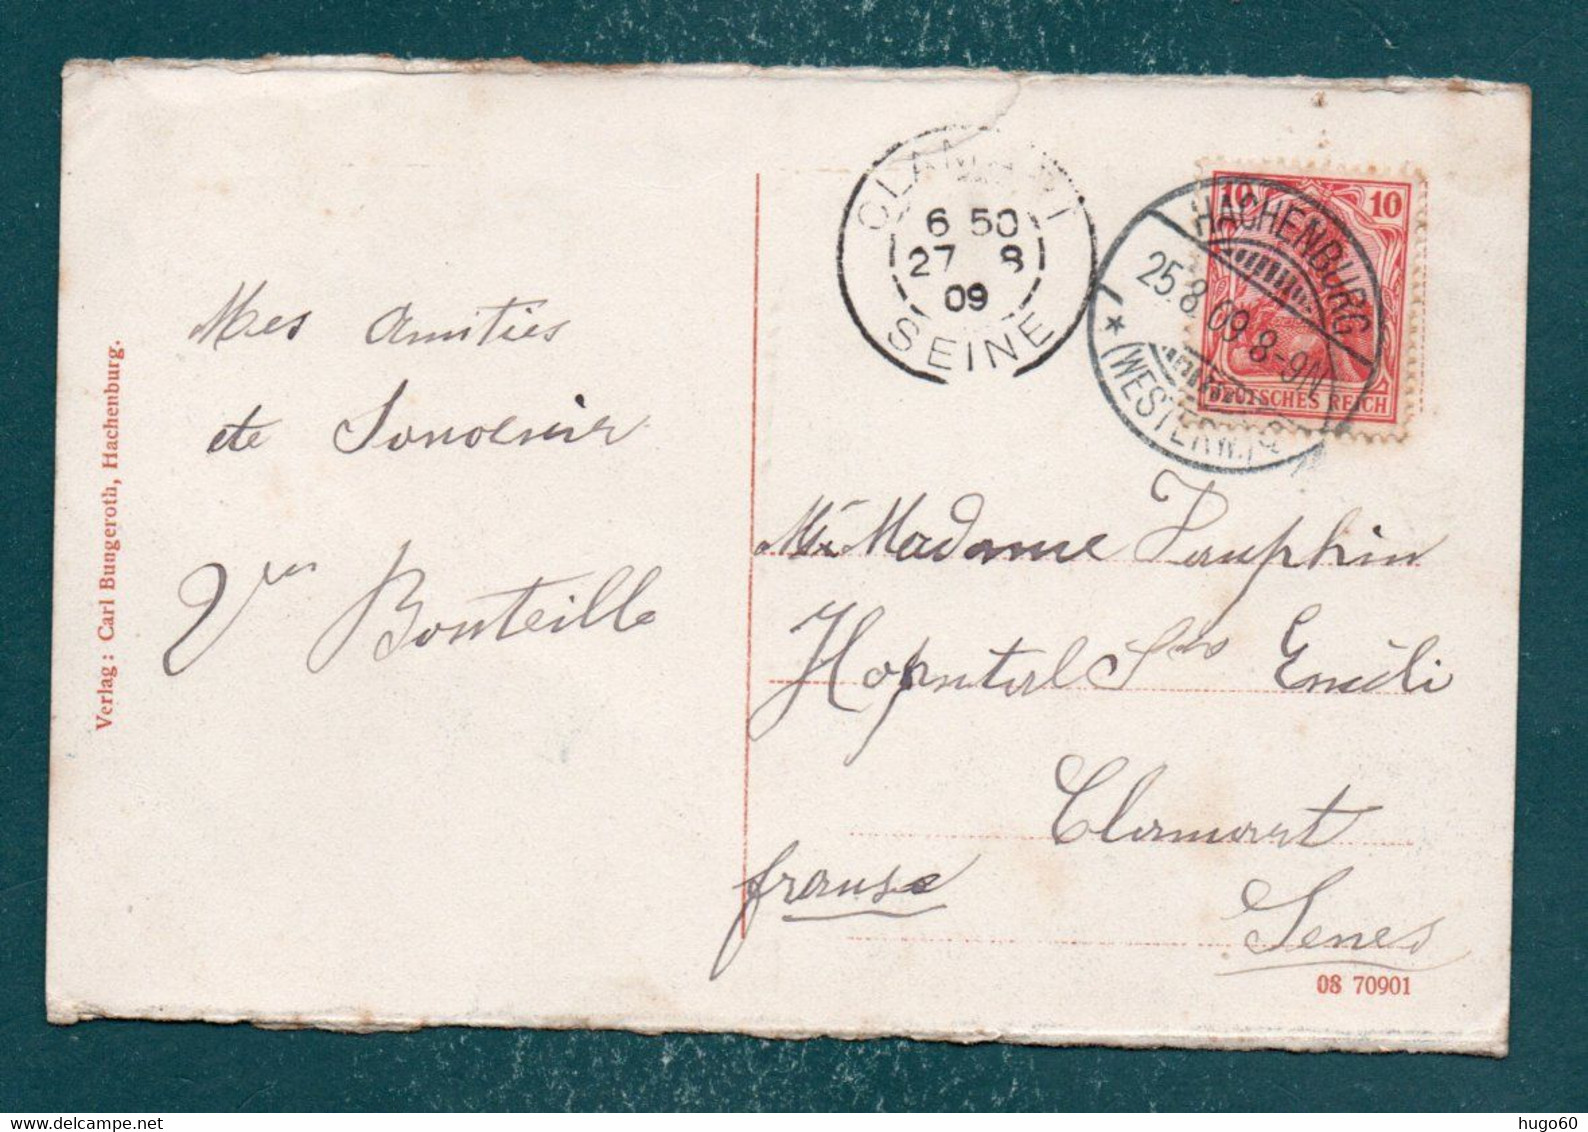 Verlag: Carl Bungeroth, Hachenburg.
Mes Amitiés
et Souvenir
Vve Bouteille
CLAMART
6 50
27 8
09
SEINE
10 10
DEUTSCHES REICH
HACHENBURG
25.8.09.8-9N
* (WESTERW.)
Madame Dauphin
Hopital Emili
Clamart
franse
Senes
08 70901
hugo60